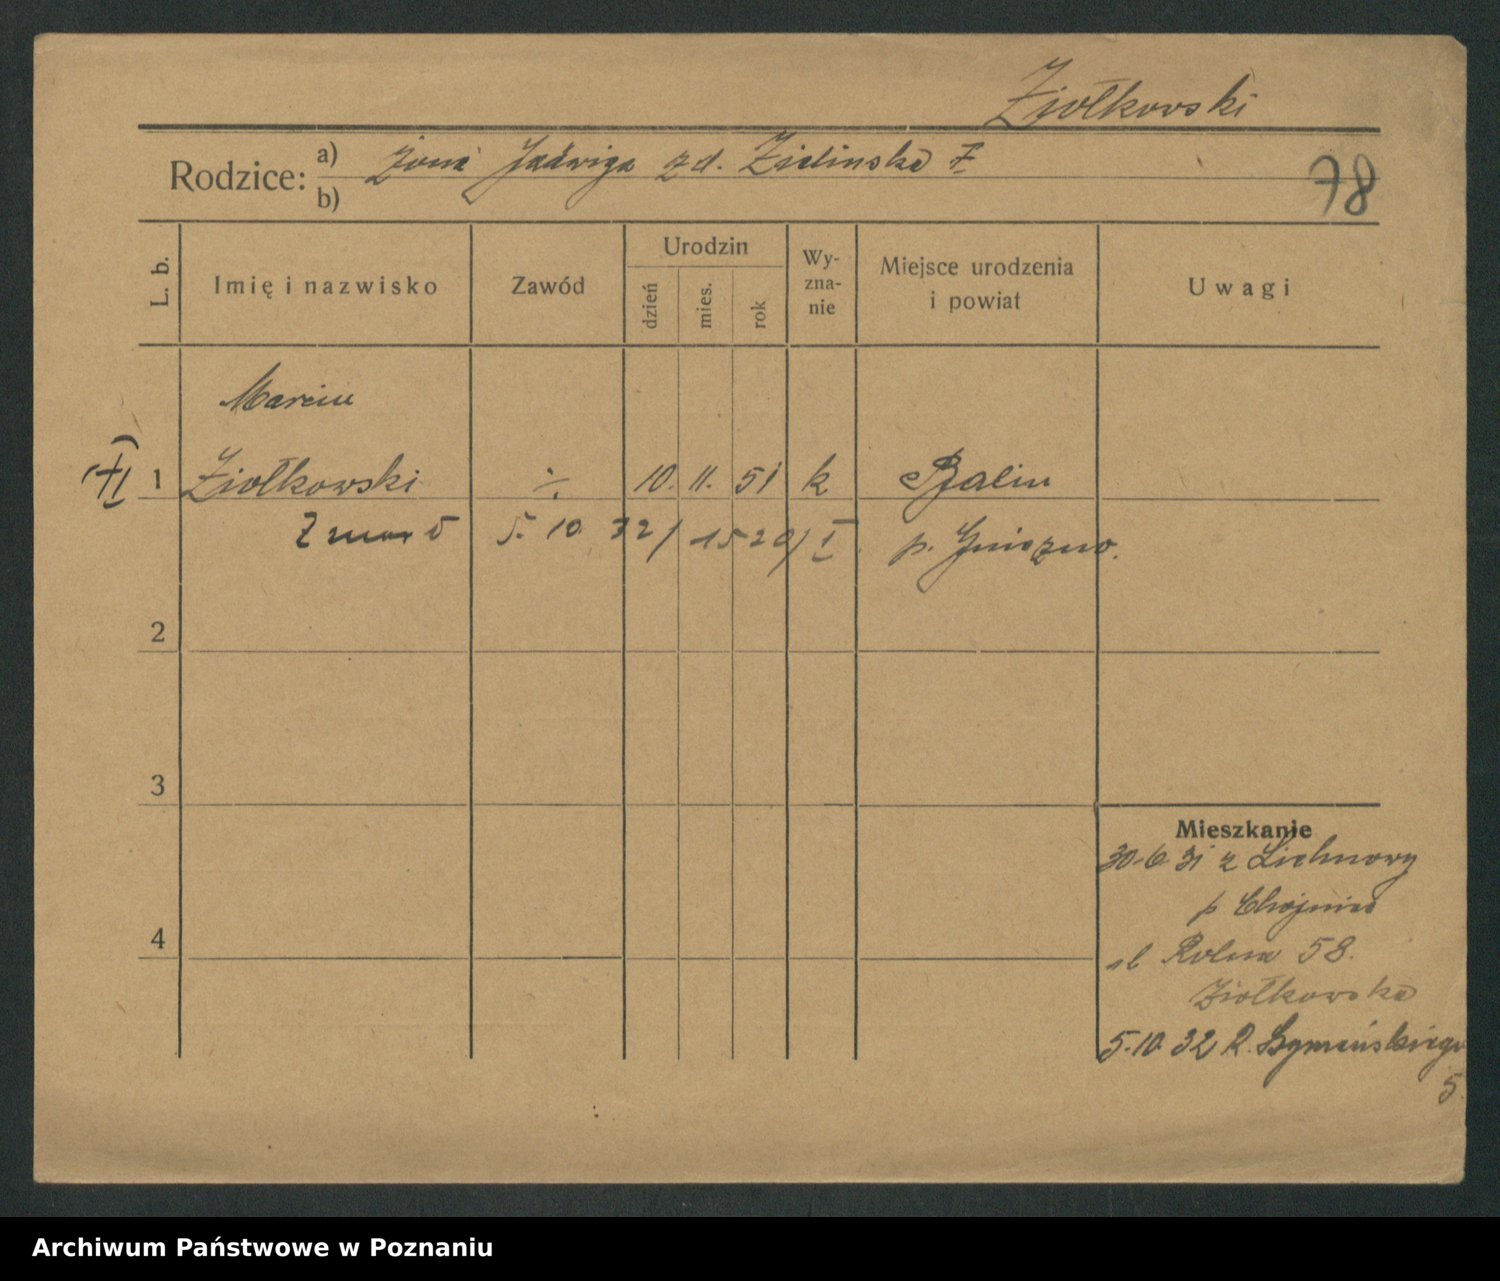 Ziołkowski
Rodzice: a) żona Jadwiga z d. Zielinska
b)
78
L. b. Imię i nazwisko Zawód Urodzin dzień mies. rok Wy-zna-nie Miejsce urodzenia i powiat Uwagi
Marcin
1 Ziołkowski ÷ 10. 11. 51 k Balin
Zmarł 5. 10 32 / 1520 / I p. Gniezno.
2
3
Mieszkanie
30.6 31 z Lichnowy
p Chojnice
4
ul Rolna 58.
Ziołkowska
5.10 32 R. Szymańskiego
5.
Archiwum Państwowe w Poznaniu